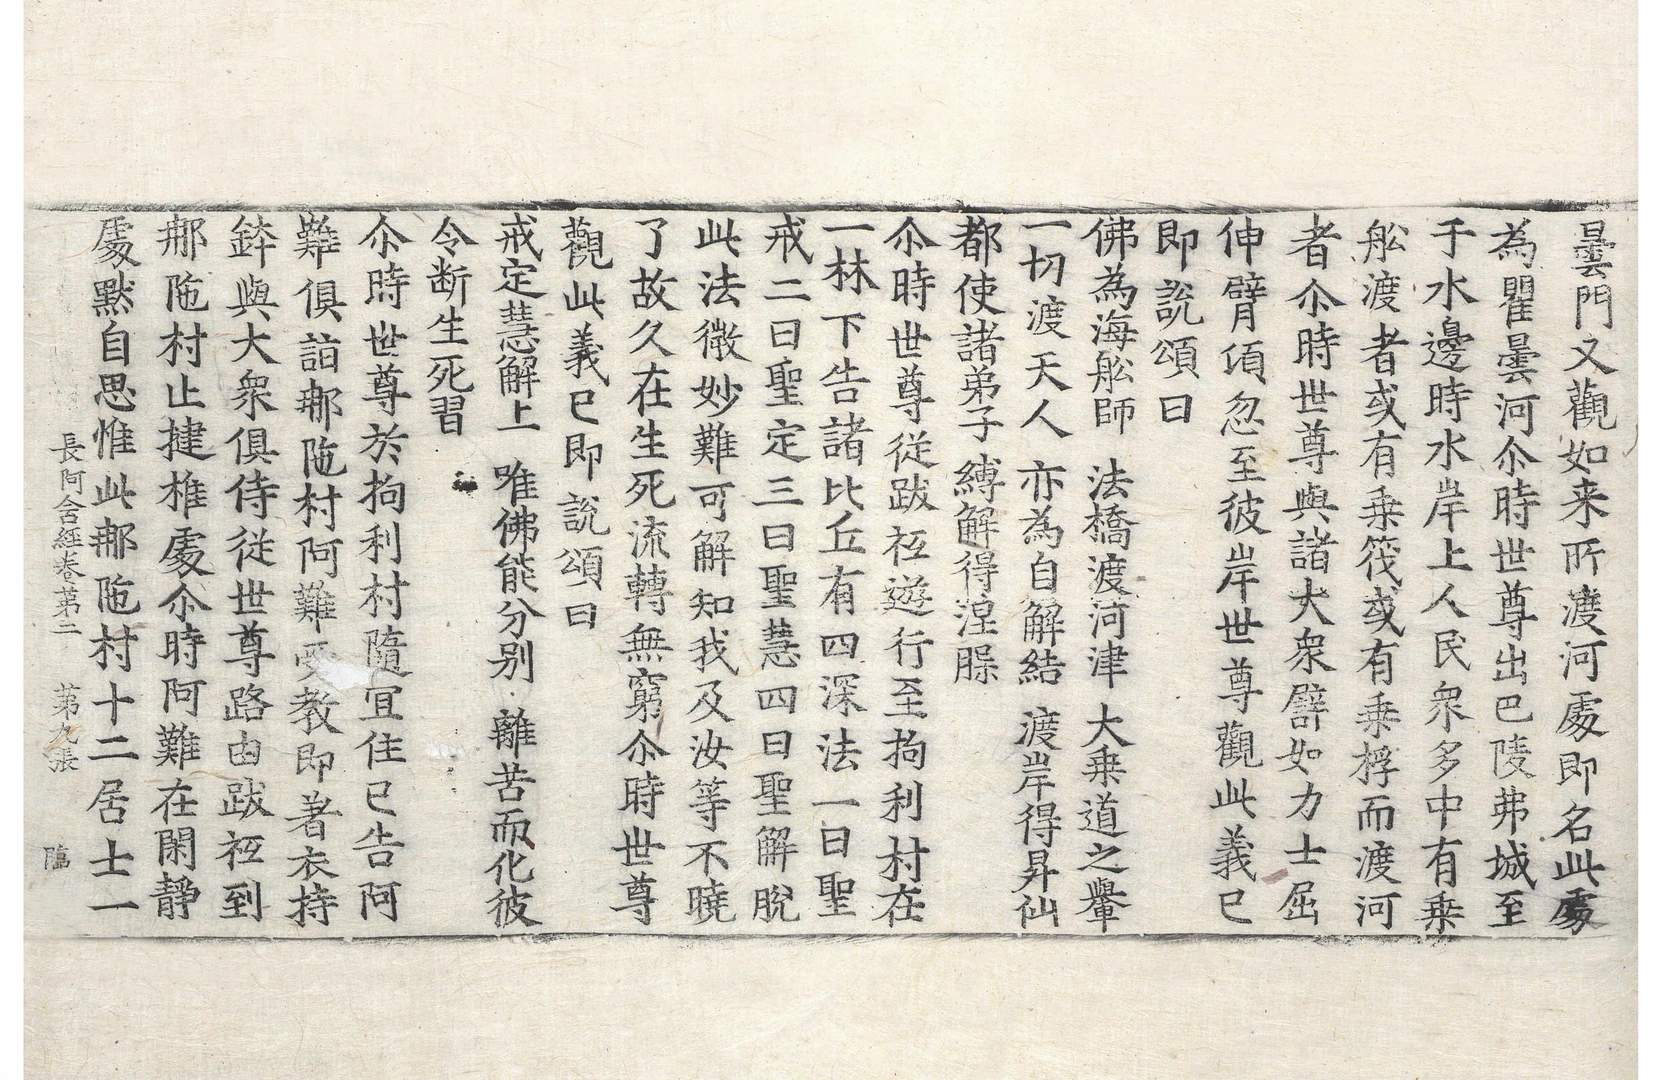 曇門又觀如来所渡河處即名此處
為瞿曇河尒時世尊出巴陵弗城至
于水邊時水岸上人民衆多中有乗
舩渡者或有乗筏或有乗桴而渡河
者尒時世尊與諸大衆譬如力士屈
伸臂頃忽至彼岸世尊觀此義已
即說頌曰
佛為海舩師 法橋渡河津 大乗道之轝
一切渡天人 亦為自解結 渡岸得昇仙
都使諸弟子 縛解得涅槃
尒時世尊従跋祇遊行至拘利村在
一林下告諸比丘有四深法一曰聖
戒二曰聖定三曰聖慧四曰聖解脫
此法微妙難可解知我及汝等不曉
了故久在生死流轉無窮尒時世尊
觀此義已即說頌曰
戒定慧解上 唯佛能分別 離苦而化彼
令断生死習
尒時世尊於拘利村隨冝住已告阿
難俱詣𨙻陁村阿難受教即著衣持
鉢與大衆俱侍従世尊路由跋祇到
𨙻陁村止揵椎處尒時阿難在閑靜
處默自思惟此𨙻陁村十二居士一
長阿含經卷第二 第九張 臨